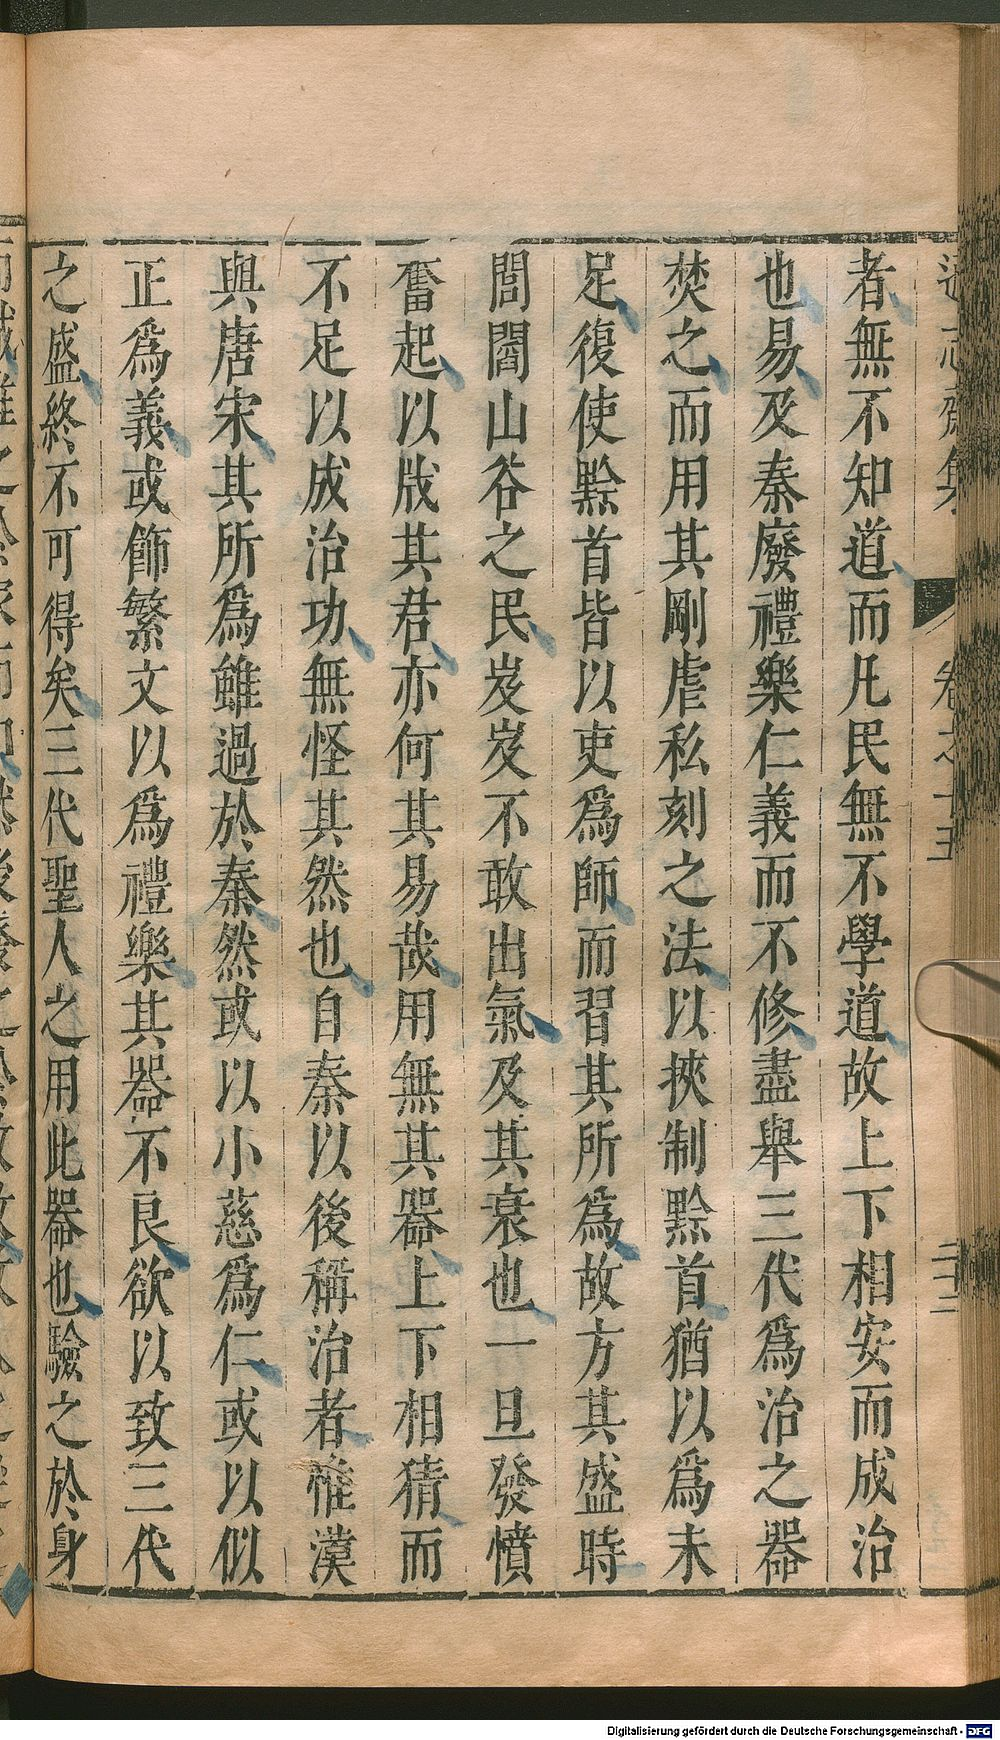 者無不知道而凡民無不學道故上下相安而成治
也易及秦廢禮樂仁義而不修盡舉三代為治之器
焚之而用其剛虐私刻之法以挾制黔首猶以為未
足復使黔首皆以吏為師而習其所為故方其盛時
閭閻山谷之民岌岌不敢出氣及其衰也一旦發憤
奮起以戕其君亦何其易哉用無其器上下相猜而
不足以成治功無怪其然也自秦以後稱治者惟漢
與唐宋其所為雖過於秦然或以小慈為仁或以似
正為義或飾繁文以為禮樂其器不良欲以致三代
之盛終不可得矣三代聖人之用此器也驗之於身
卷之十五
二十二
Digitalisierung gefördert durch die Deutsche Forschungsgemeinschaft - DFG